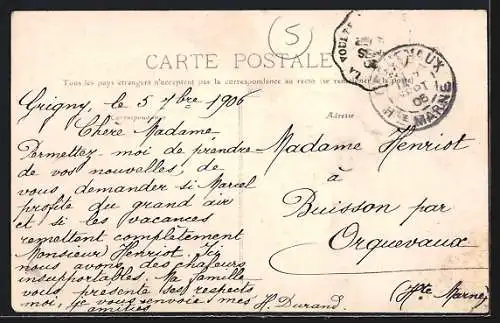 5
CARTE POSTALE
Tous les pays étrangers n'acceptent pas la correspondance au recto (se renseigner à la poste)
Correspondance
Adresse
Grigny, le 5 7bre 1906
Chère Madame,
Permettez-moi de prendre
de vos nouvelles, de
vous demander si Marcel
profite du grand air
et si les vacances
remettent complètement
Monsieur Henriot. Ici
nous avons des chaleurs
insupportables. Ma famille
vous présente ses respects
moi, je vous envoie mes
amitiés
H. Durand.
Madame Henriot
à
Buisson par
Orquevaux
(Hte Marne)
LA VOULTE
SEPT
06
HTE MARNE